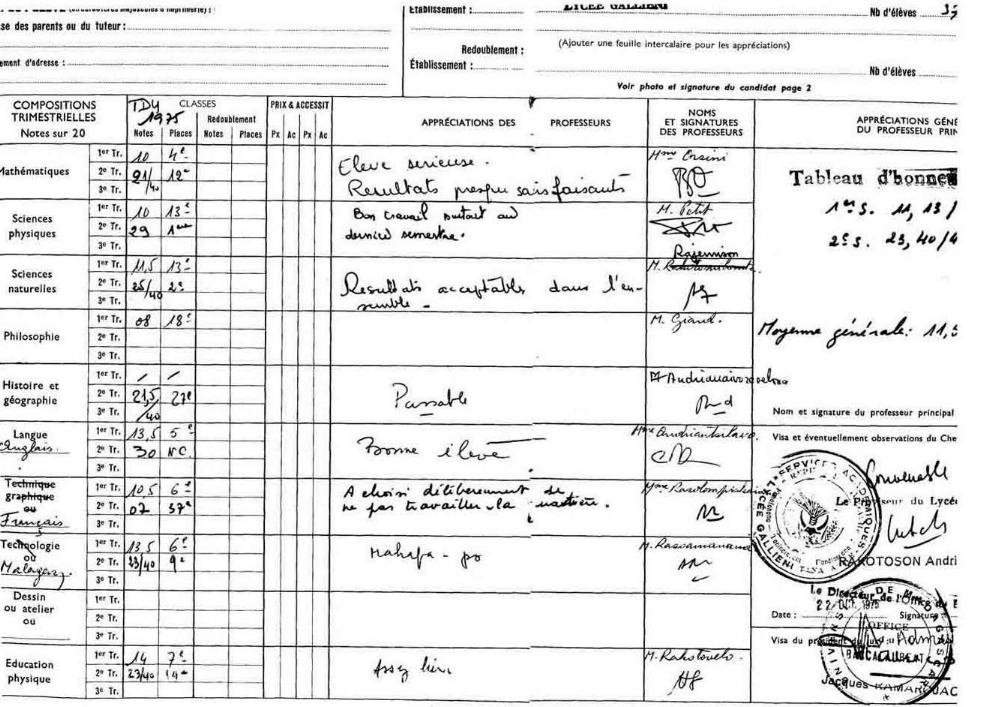 Établissement : LYCEE GALLIENI Nb d'élèves
se des parents ou du tuteur :
(Ajouter une feuille intercalaire pour les appréciations)
Redoublement :
ement d'adresse :
Établissement : Nb d'élèves
Voir photo et signature du candidat page 2
COMPOSITIONS TRIMESTRIELLES Notes sur 20
CLASSES
1975
Redoublement
Notes Places Notes Places
PRIX & ACCESSIT
Px Ac Px Ac
APPRÉCIATIONS DES PROFESSEURS
NOMS ET SIGNATURES DES PROFESSEURS
APPRÉCIATIONS GÉNÉ
DU PROFESSEUR PRIN
Mathématiques
1er Tr. 10 4e
2e Tr. 21/40 12e
3e Tr.
Eleve serieuse.
Resultats presque satisfaisants
Tableau d'honneu
1er S. 11, 13 /
2e S. 23, 40/4
Sciences physiques
1er Tr. 10 13e
2e Tr. 29
3e Tr.
Bon travail surtout au
dernier semestre.
M. Petit
Sciences naturelles
1er Tr. 11,5 13e
2e Tr. 25/40 2e
3e Tr.
Resultats acceptables dans l'en-
semble -
Rajemison
M.
Philosophie
1er Tr. 08 18e
2e Tr.
3e Tr.
M. Girard.
Moyenne générale: 11,
Histoire et géographie
1er Tr. / /
2e Tr. 21,5/40 27e
3e Tr.
Passable
Nom et signature du professeur principal
Langue
Anglais
1er Tr. 13,5 5e
2e Tr. 30 NC
3e Tr.
Bonne élève
Visa et éventuellement observations du Che
Convenable
Technique graphique ou
Français
1er Tr. 10,5 6e
2e Tr. 07 37e
3e Tr.
A choisi délibérement de
ne pas travailler la matière.
Le Proviseur du Lycée
Technologie ou
Malagasy
1er Tr. 13,5 6e
2e Tr. 23/40 9e
3e Tr.
Mahafa - po
RAKOTOSON Andri
Dessin ou atelier ou
1er Tr.
2e Tr.
3e Tr.
Le Directeur de l'Office du
22 OCT. 1975
Date : Signature
Visa du président du jury
OFFICE
BACCALAUREAT
Education physique
1er Tr. 14 7e
2e Tr. 23/40 14e
3e Tr.
Assez bien
M. Rakotovelo.
Jacques RAMAROJAC